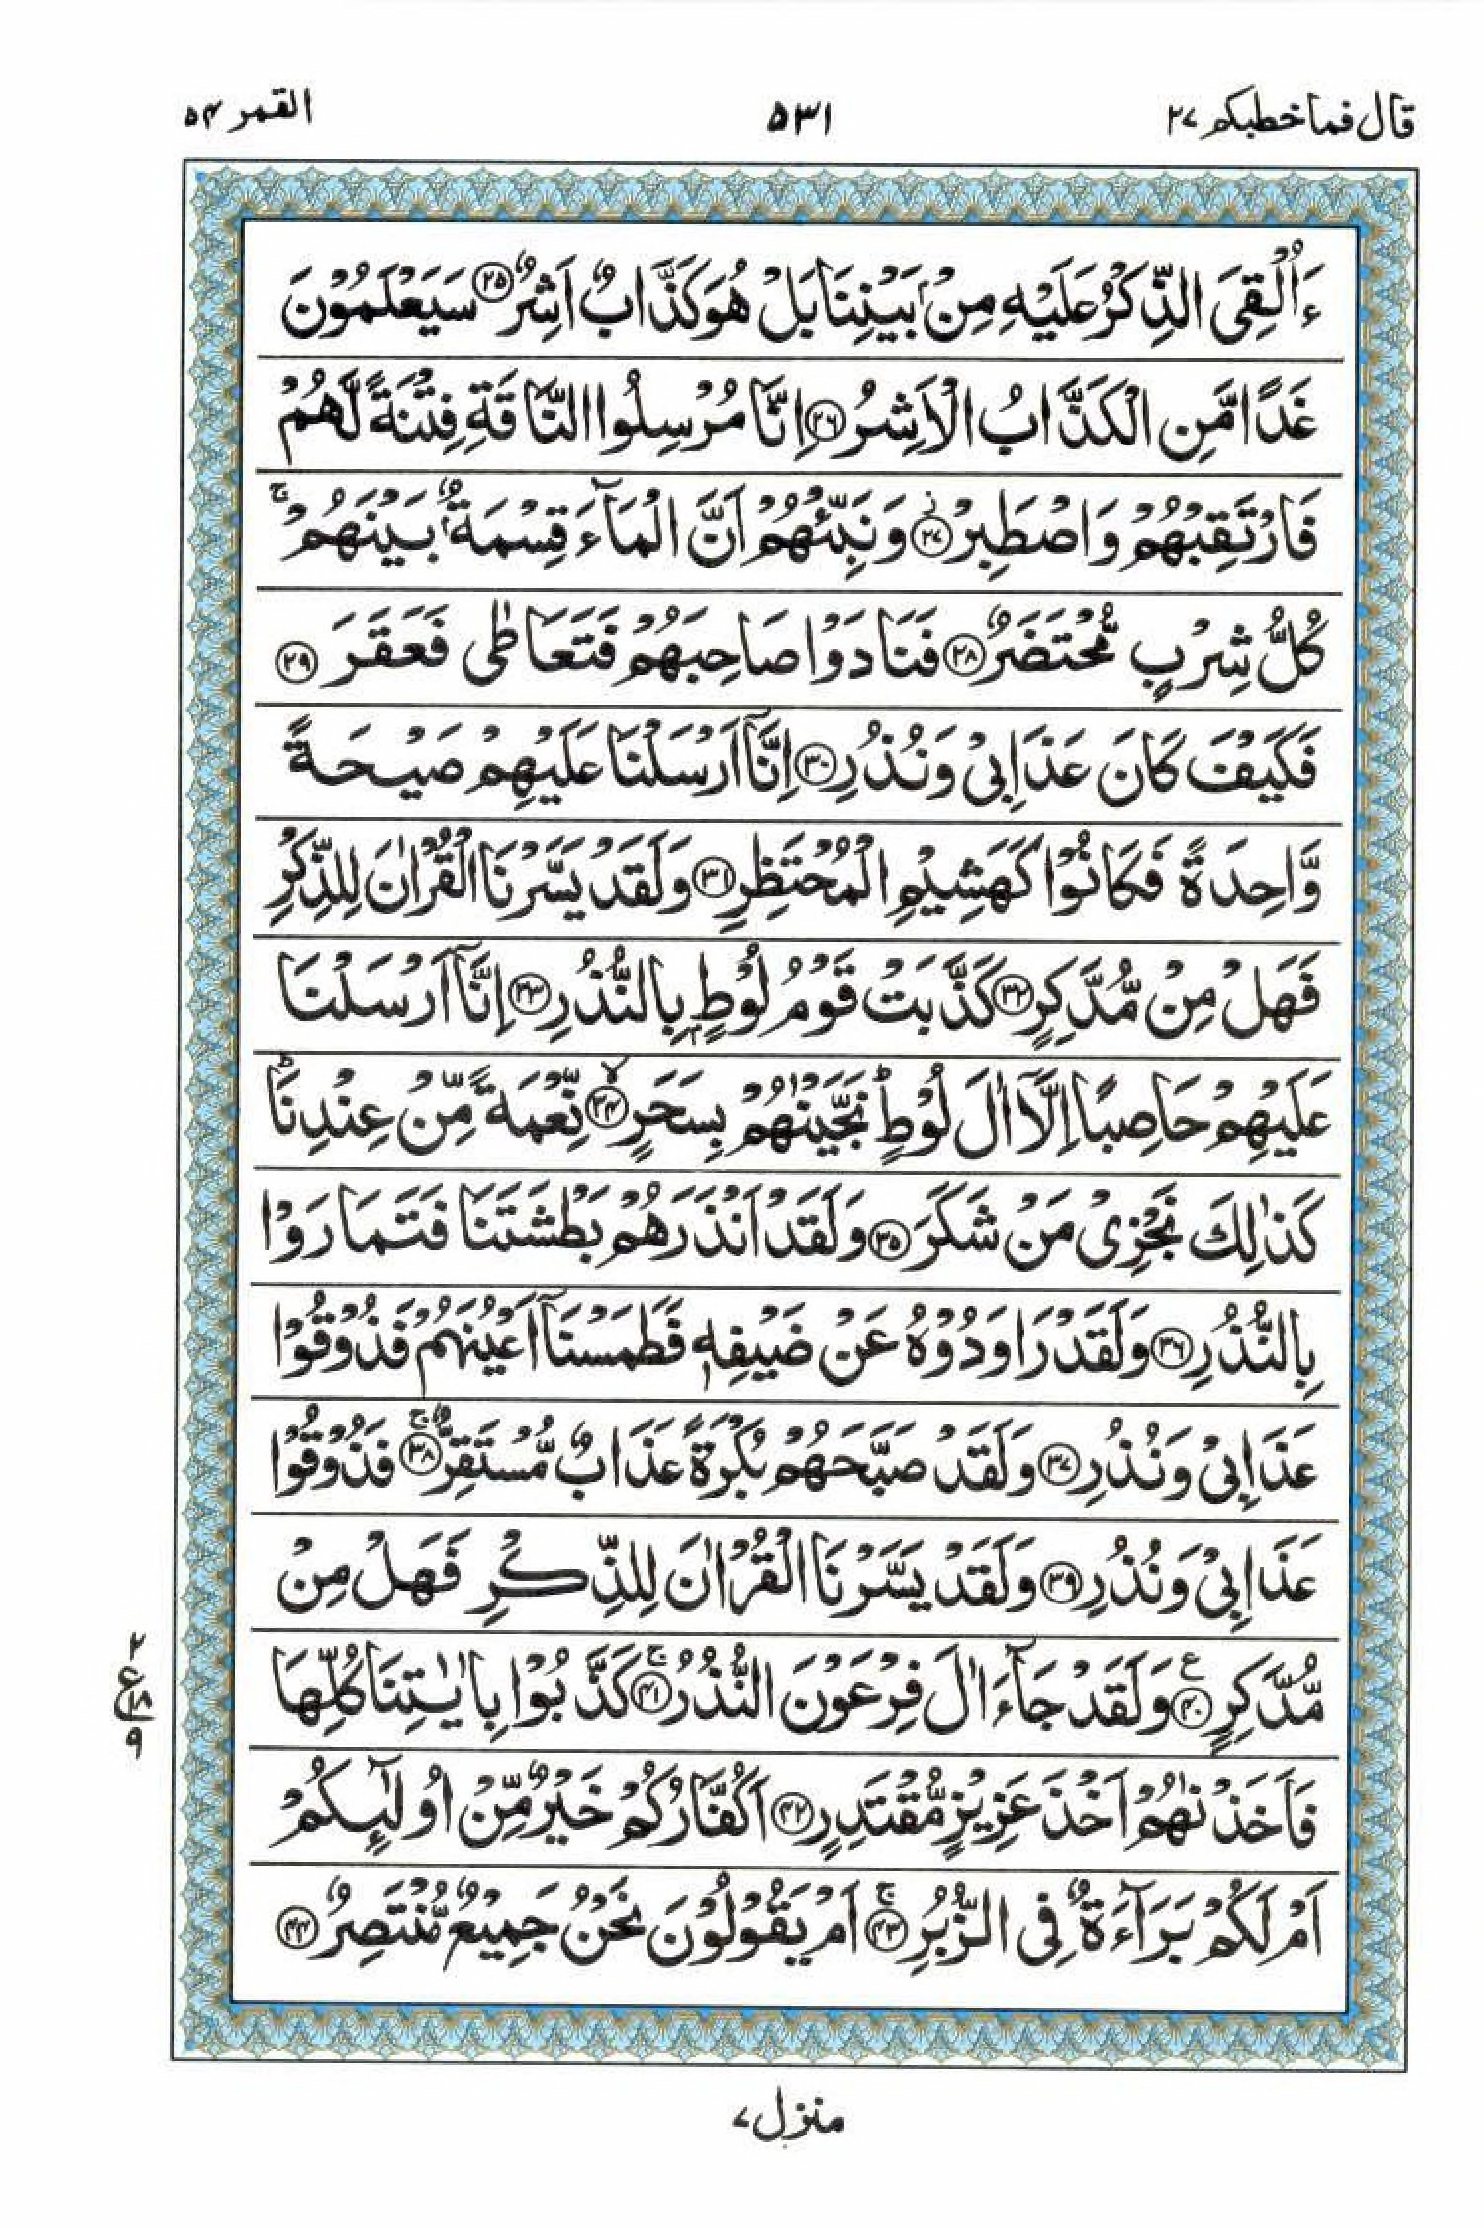 قال فما خطبكم ٢٧
٥٣١
القمر ٥٤
ءَاُلْقِيَ الذِّكْرُ عَلَيْهِ مِنْۢ بَيْنِنَا بَلْ هُوَ كَذَّابٌ اَشِرٌ ۝٢٥ سَيَعْلَمُوْنَ
غَدًا مَّنِ الْكَذَّابُ الْاَشِرُ ۝٢٦ اِنَّا مُرْسِلُوا النَّاقَةِ فِتْنَةً لَّهُمْ
فَارْتَقِبْهُمْ وَاصْطَبِرْ ۝٢٧ۙ وَنَبِّئْهُمْ اَنَّ الْمَآءَ قِسْمَةٌۢ بَيْنَهُمْ ۚ
كُلُّ شِرْبٍ مُّحْتَضَرٌ ۝٢٨ فَنَادَوْا صَاحِبَهُمْ فَتَعَاطٰى فَعَقَرَ ۝٢٩
فَكَيْفَ كَانَ عَذَابِيْ وَنُذُرِ ۝٣٠ اِنَّآ اَرْسَلْنَا عَلَيْهِمْ صَيْحَةً
وَّاحِدَةً فَكَانُوْا كَهَشِيْمِ الْمُحْتَظِرِ ۝٣١ وَلَقَدْ يَسَّرْنَا الْقُرْاٰنَ لِلذِّكْرِ
فَهَلْ مِنْ مُّدَّكِرٍ ۝٣٢ كَذَّبَتْ قَوْمُ لُوْطٍۭ بِالنُّذُرِ ۝٣٣ اِنَّآ اَرْسَلْنَا
عَلَيْهِمْ حَاصِبًا اِلَّآ اٰلَ لُوْطٍ ؕ نَجَّيْنٰهُمْ بِسَحَرٍ ۝٣٤ۙ نِّعْمَةً مِّنْ عِنْدِنَا ؕ
كَذٰلِكَ نَجْزِيْ مَنْ شَكَرَ ۝٣٥ وَلَقَدْ اَنْذَرَهُمْ بَطْشَتَنَا فَتَمَارَوْا
بِالنُّذُرِ ۝٣٦ وَلَقَدْ رَاوَدُوْهُ عَنْ ضَيْفِهٖ فَطَمَسْنَآ اَعْيُنَهُمْ فَذُوْقُوْا
عَذَابِيْ وَنُذُرِ ۝٣٧ وَلَقَدْ صَبَّحَهُمْ بُكْرَةً عَذَابٌ مُّسْتَقِرٌّ ۝٣٨ۚ فَذُوْقُوْا
عَذَابِيْ وَنُذُرِ ۝٣٩ وَلَقَدْ يَسَّرْنَا الْقُرْاٰنَ لِلذِّكْرِ فَهَلْ مِنْ
مُّدَّكِرٍ ۝٤٠ع وَلَقَدْ جَآءَ اٰلَ فِرْعَوْنَ النُّذُرُ ۝٤١ۚ كَذَّبُوْا بِاٰيٰتِنَا كُلِّهَا
٢
ع ١٨
٩
فَاَخَذْنٰهُمْ اَخْذَ عَزِيْزٍ مُّقْتَدِرٍ ۝٤٢ اَكُفَّارُكُمْ خَيْرٌ مِّنْ اُولٰٓئِكُمْ
اَمْ لَكُمْ بَرَآءَةٌ فِي الزُّبُرِ ۝٤٣ۚ اَمْ يَقُوْلُوْنَ نَحْنُ جَمِيْعٌ مُّنْتَصِرٌ ۝٤٤
منزل ٧